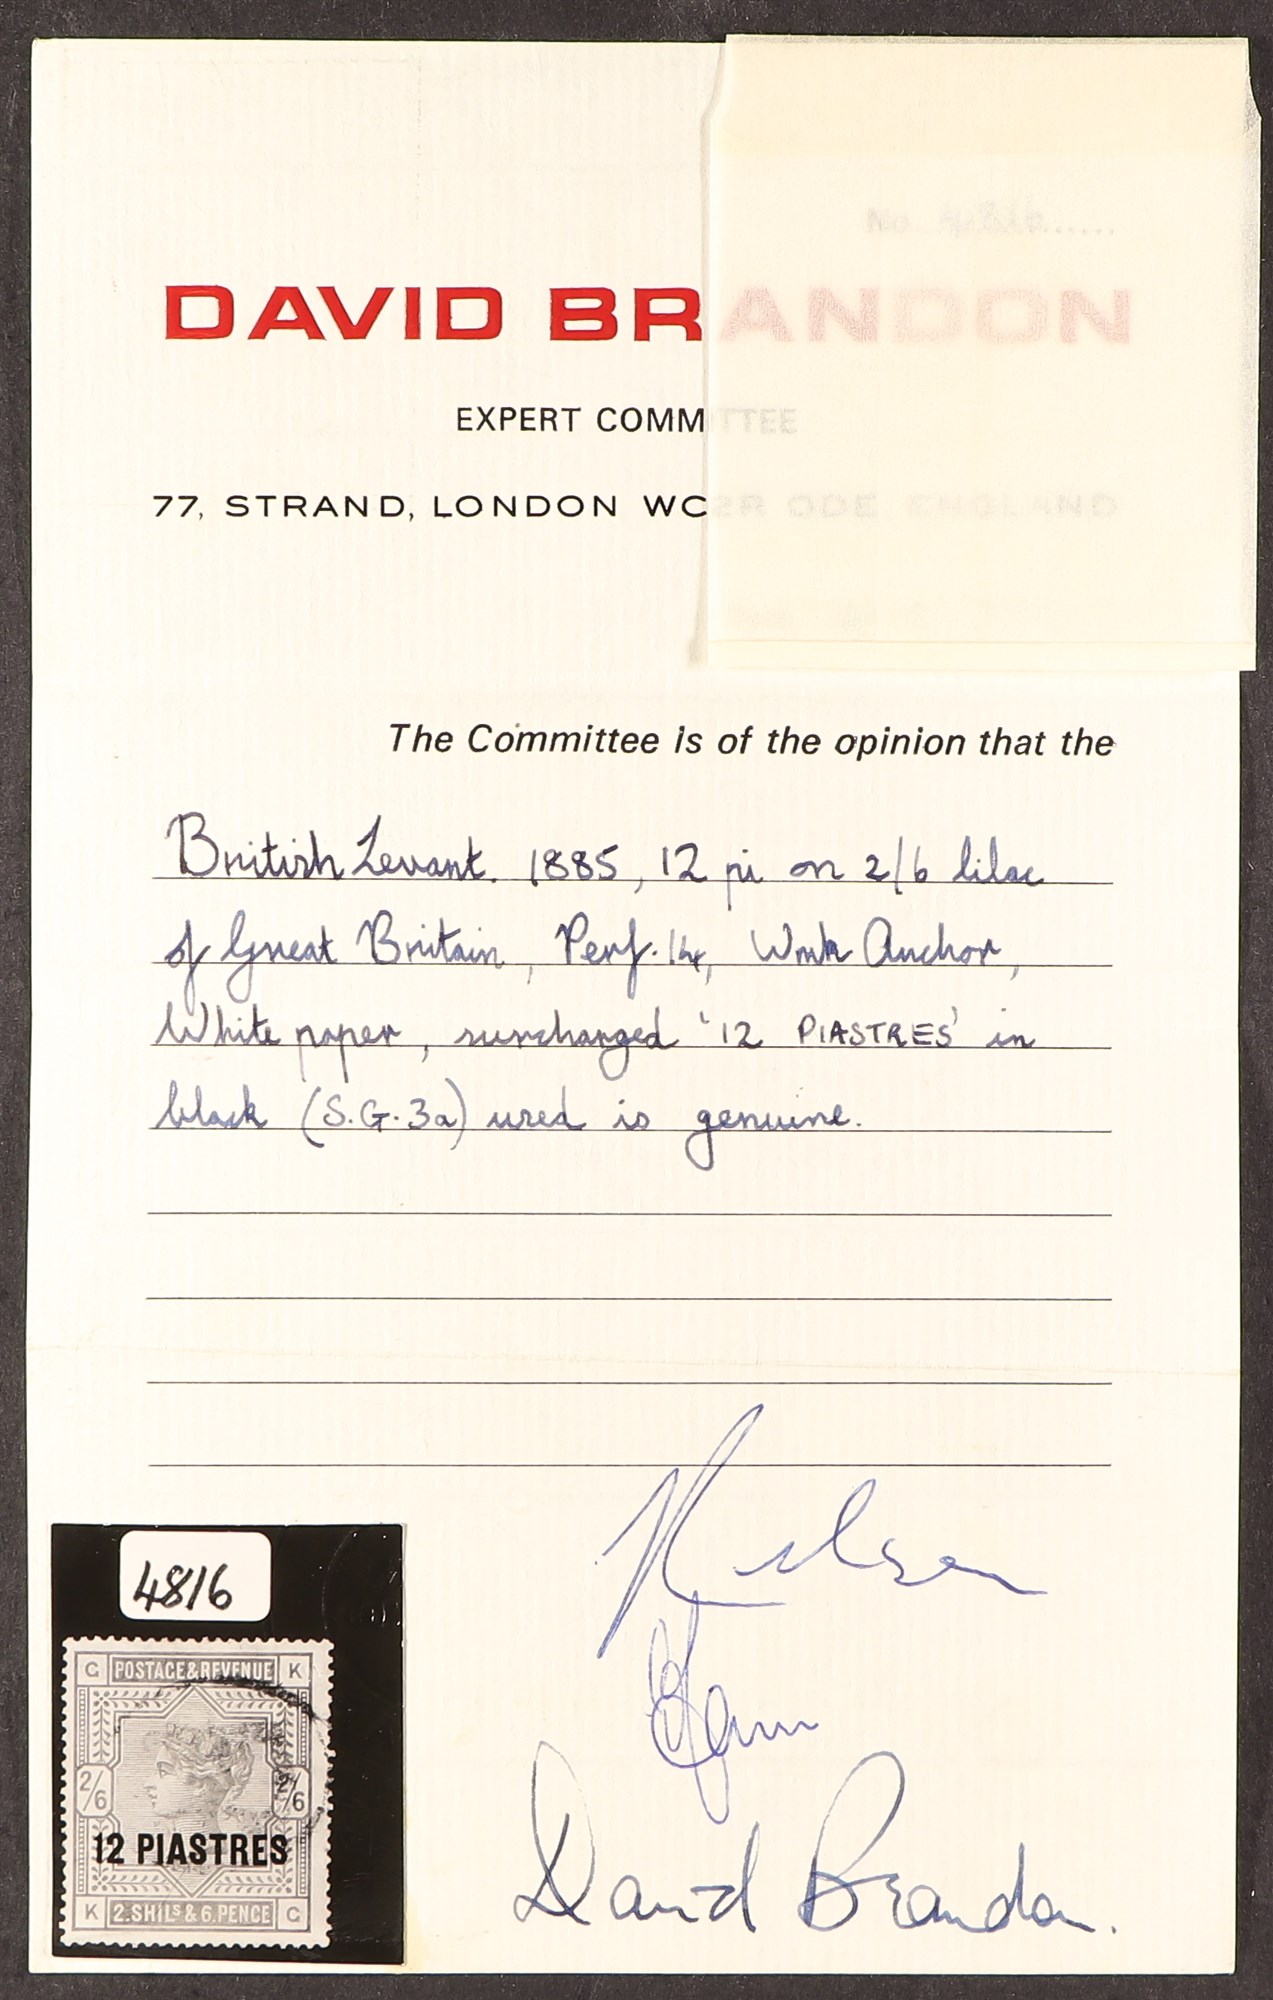 No 4816......
DAVID BRANDON
EXPERT COMMITTEE
77, STRAND, LONDON WC2R ODE ENGLAND
The Committee is of the opinion that the
British Levant. 1885, 12 pi on 2/6 lilac
of Great Britain, Perf. 14, Wmk Anchor,
White paper, surcharged '12 PIASTRES' in
black (S.G. 3a) used is genuine.
4816
G POSTAGE & REVENUE K
2/6 2/6
12 PIASTRES
K 2.SHILS & 6.PENCE G
David Brandon.